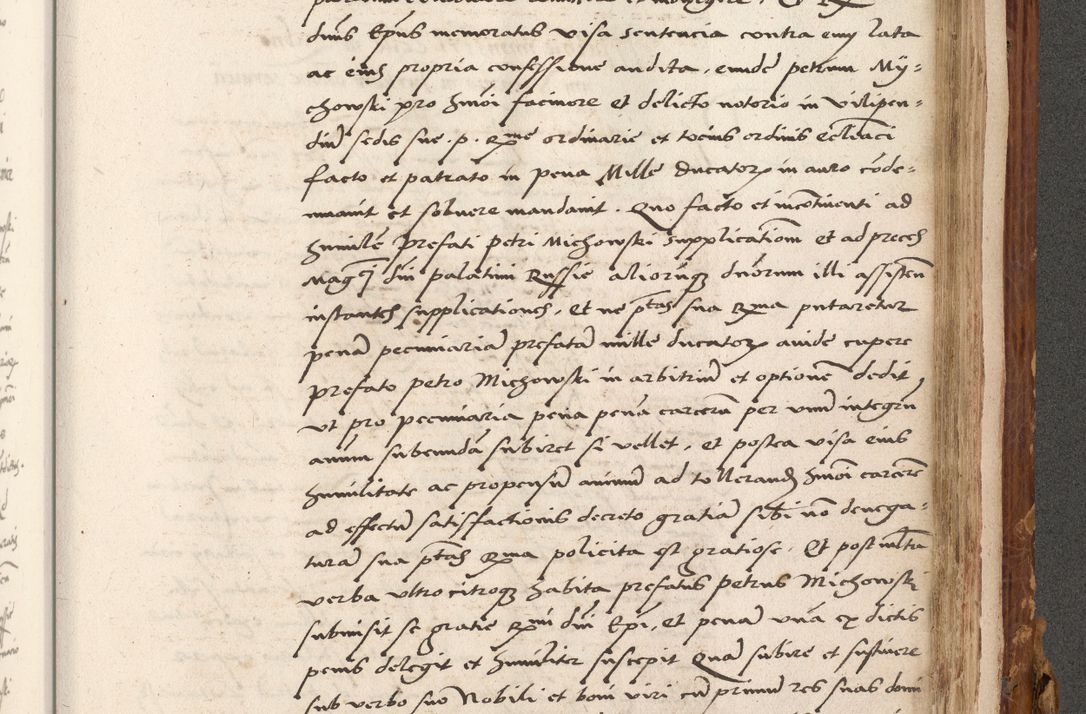 dnus Epus memoratus visa sentencia contra eum lata
ac eius propria confessione audita, eunde petrum My-
chowski pro hmoi facinore et delicto notorio in vilipen-
diu sedis sue p. Rme ordinarie et tocius ordinis ecleaci
facto et patrato in pena Mille ducatorz in auro code-
mnavit et solvere mandavit. Quo facto et incotinenti ad
humile prefati petri Michowski supplicatiom et ad preces
Magci dni palatini Russie aliorumqz dnorum illi assisten
instantes supplicationes, Et ne ptas sua Rma putaretur
pena pecuniaria prefata mille ducatorz avide cupere
prefato petro Michowski in arbitriu et optione dedit,
ut pro pecuniaria pena pena carceru per unu integru
annum subeunda subiret si vellet, et postea visa eius
humilitate ac propensu animu ad tollerand hmoi carcere
ad effectu satisfactionis decreto gratia sibi no denega-
tura sua ptas Rma policita est gratiose. Et post multa
verba ultro citroqz habita prefatus petrus Michowski
submisit se gratie Rmi dni Epi, et pena una ex dictis
penis delegit et humiliter suscepit Qua subire et sustinere
sub verbo suo Nobili et boni viri cu primu res suas domi